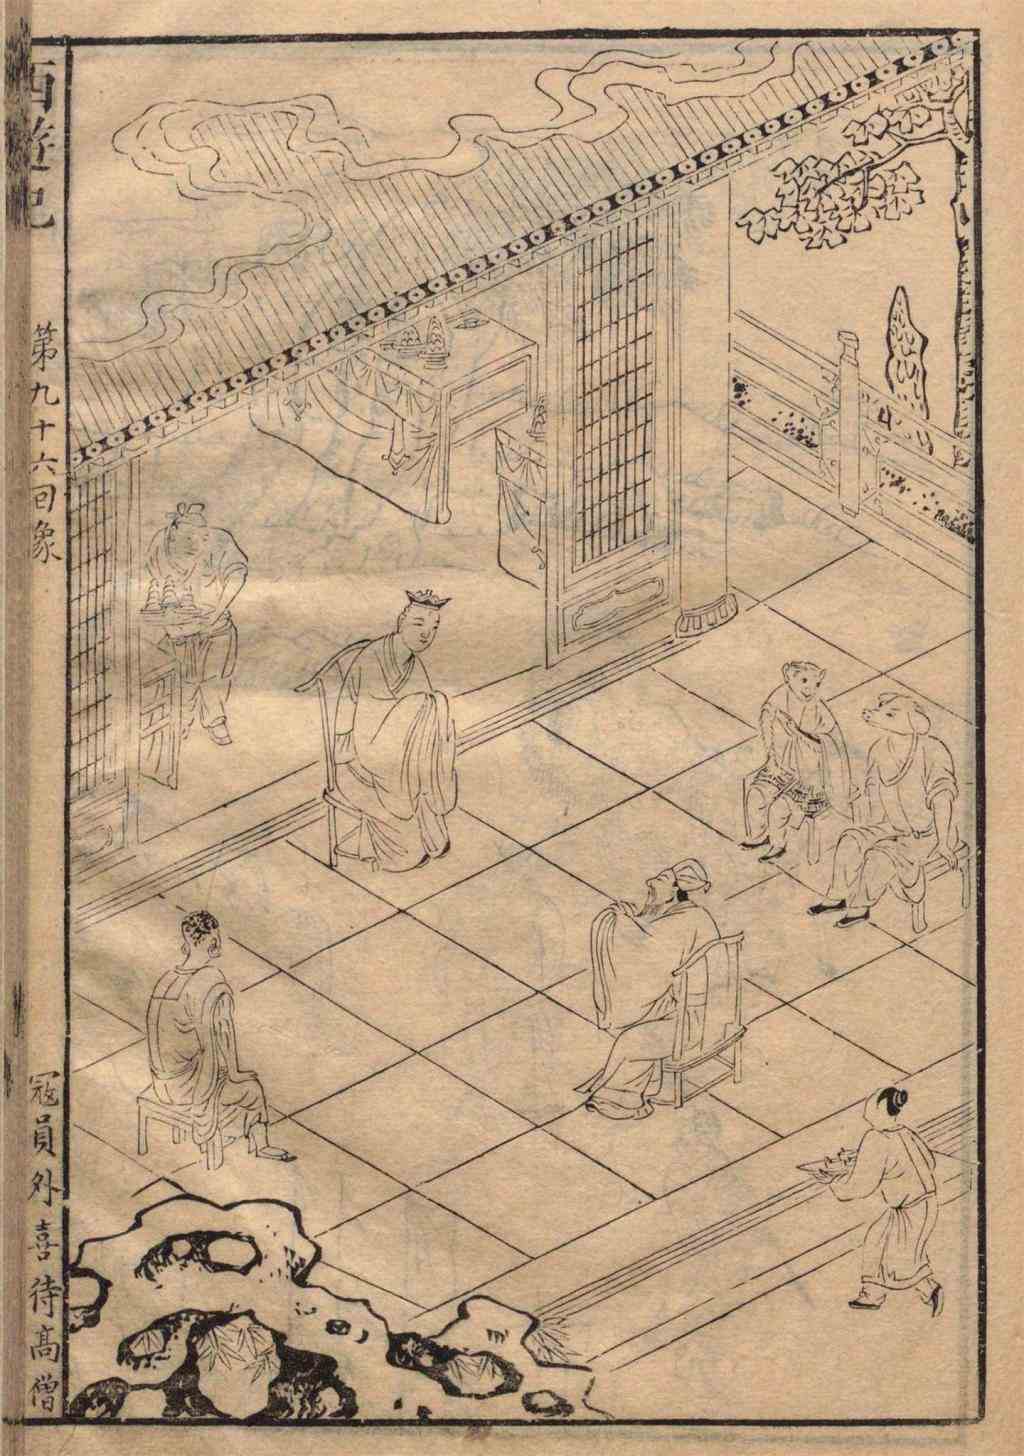 西遊記
第九十六回象
寇員外喜待高僧